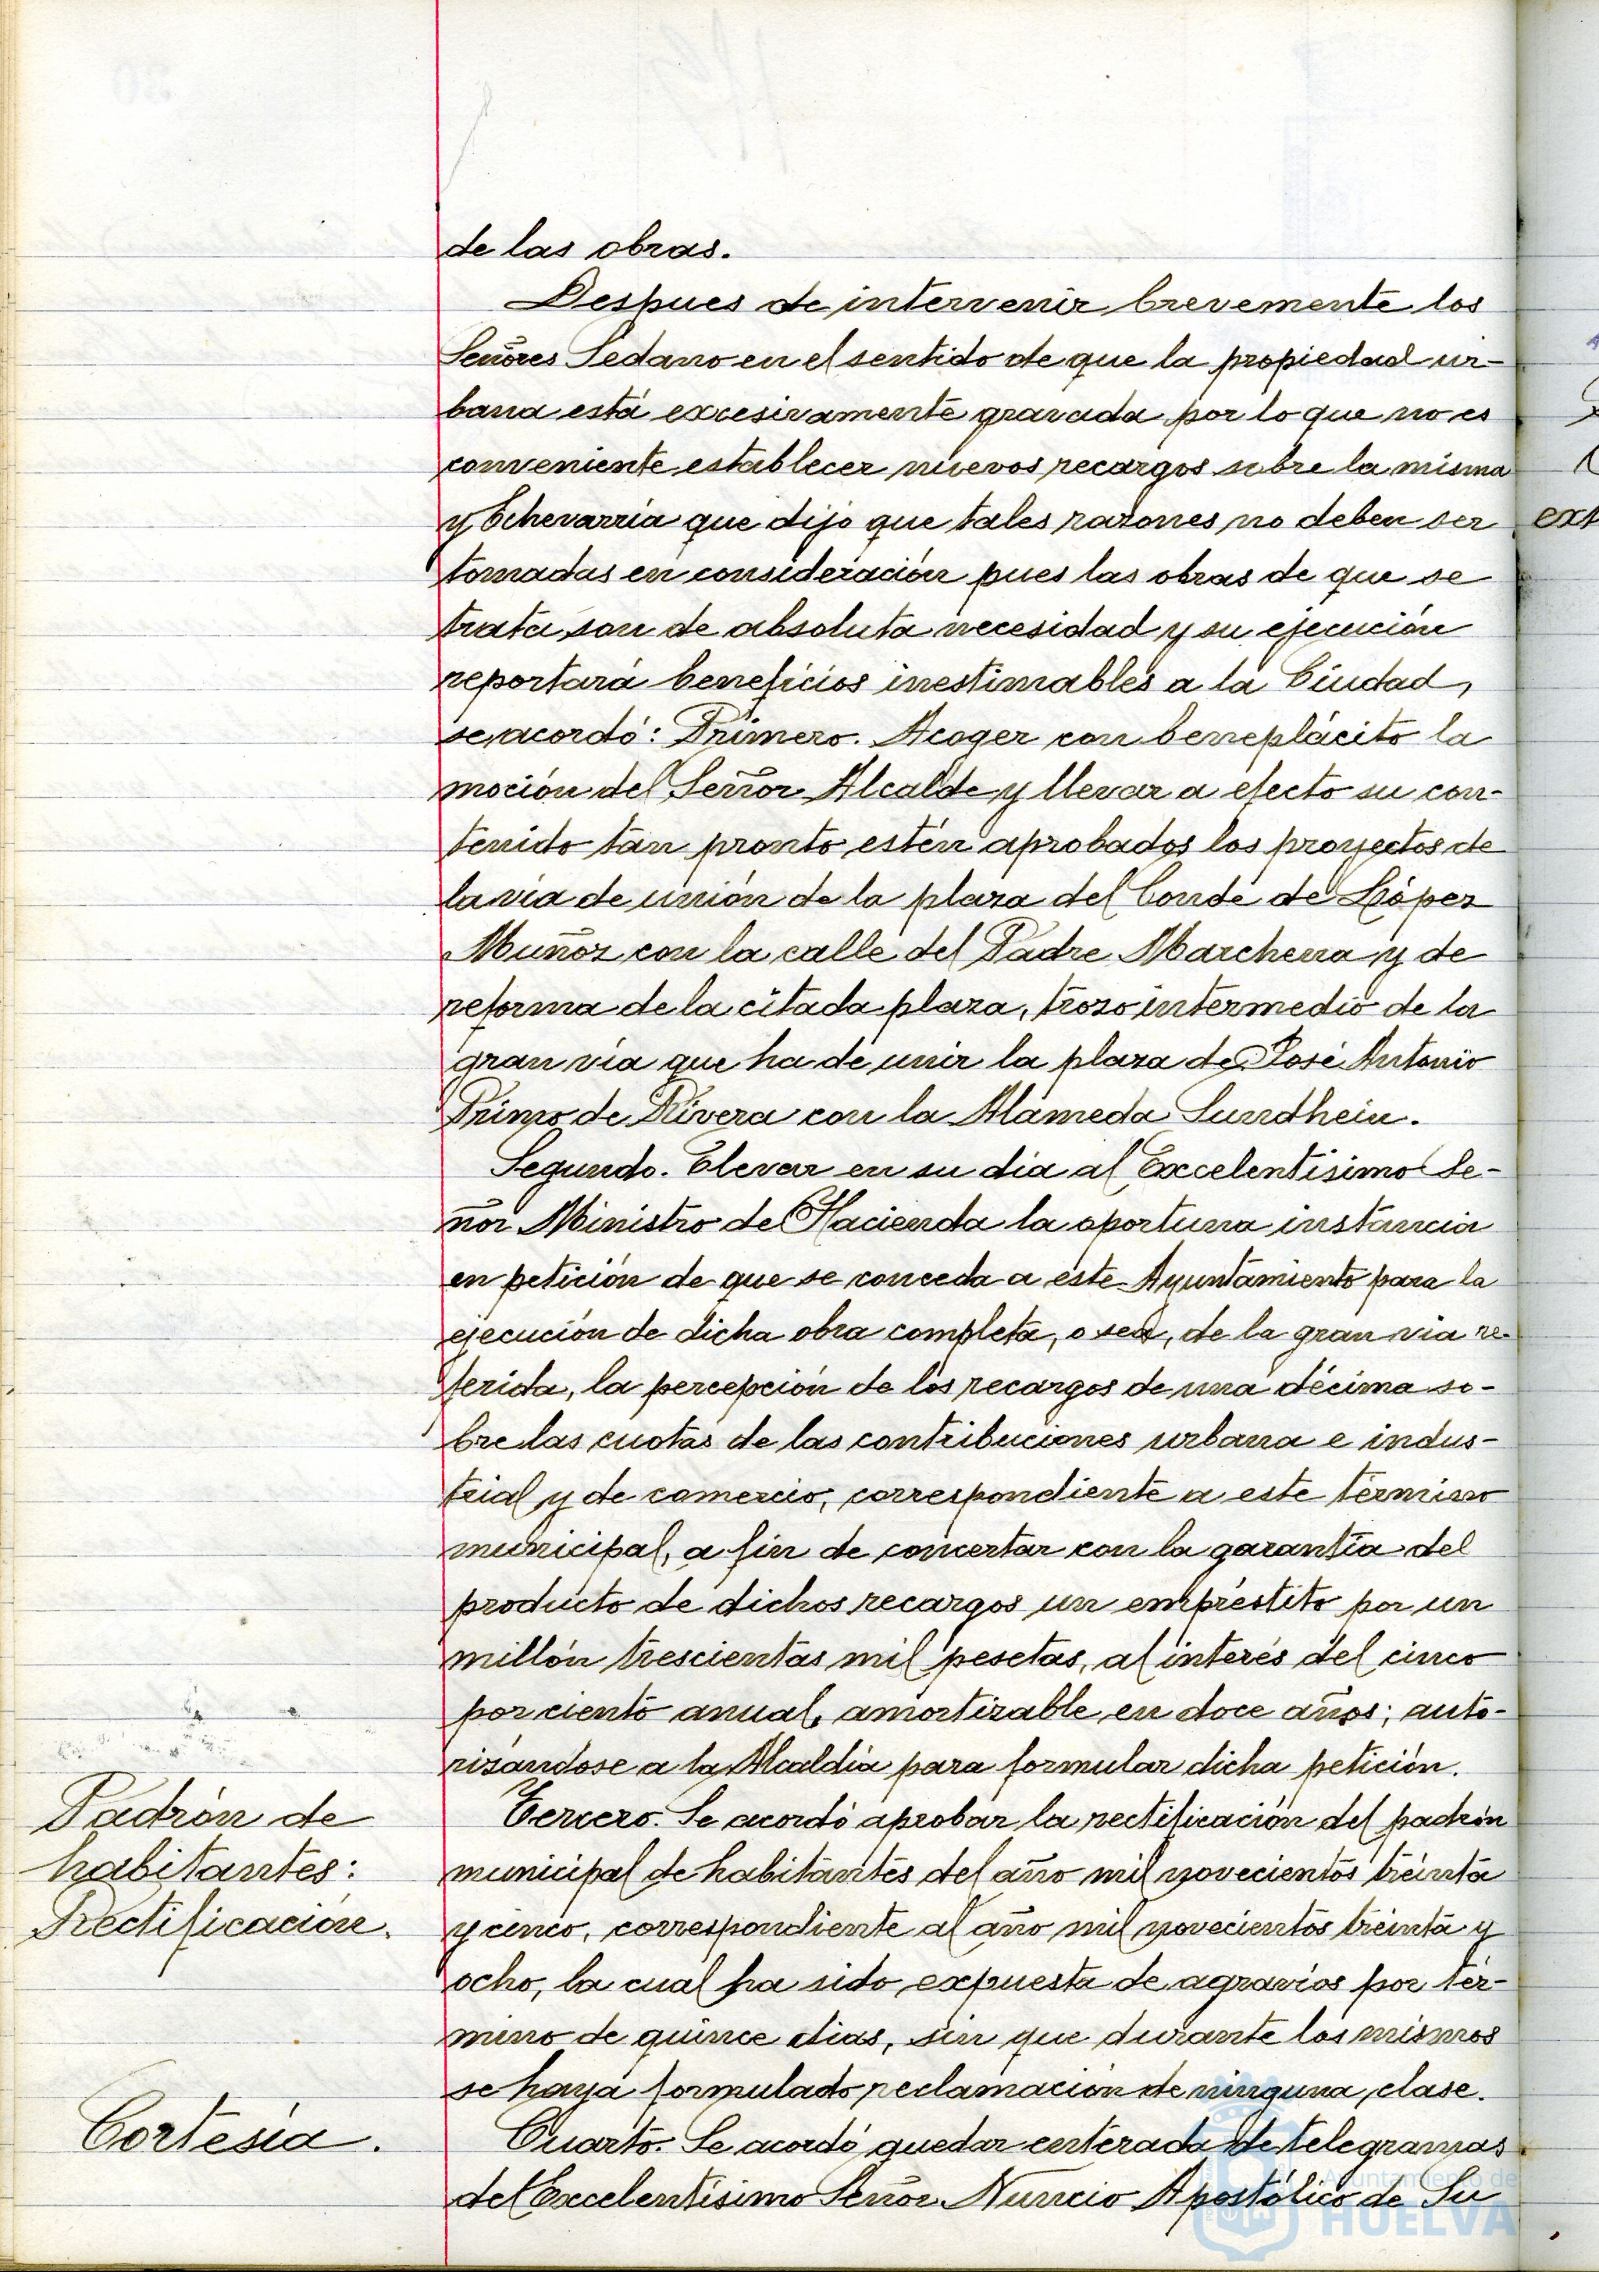 de las obras.
Despues de intervenir brevemente los
Señores Sedano en el sentido de que la propiedad ur-
bana está excesivamente gravada por lo que no es
conveniente establecer nuevos recargos sobre la misma
y Echevarría que dijo que tales razones no deben ser
tomadas en consideración pues las obras de que se
trata son de absoluta necesidad y su ejecución
reportará beneficios inestimables a la Ciudad,
se acordó: Primero. Acoger con beneplácito la
moción del Señor Alcalde y llevar a efecto su con-
tenido tan pronto estén aprobados los proyectos de
la vía de unión de la plaza del Conde de López
Muñoz con la calle del Padre Marchena y de
reforma de la citada plaza, trozo intermedio de la
gran vía que ha de unir la plaza de José Antonio
Primo de Rivera con la Alameda Sundhein.
Segundo. Elevar en su día al Excelentísimo Se-
ñor Ministro de Hacienda la oportuna instancia
en petición de que se conceda a este Ayuntamiento para la
ejecución de dicha obra completa, o sea, de la gran vía re-
ferida, la percepción de los recargos de una décima so-
bre las cuotas de las contribuciones urbana e indus-
trial y de comercio, correspondiente a este término
municipal, a fin de concertar con la garantía del
producto de dichos recargos un empréstito por un
millón trescientas mil pesetas, al interés del cinco
por ciento anual, amortizable en doce años; auto-
rizándose a la Alcaldía para formular dicha petición.
Padrón de
habitantes:
Rectificación.
Tercero. Se acordó aprobar la rectificación del padrón
municipal de habitantes del año mil novecientos treinta
y cinco, correspondiente al año mil novecientos treinta y
ocho, la cual ha sido expuesta de agravios por tér-
mino de quince días, sin que durante los mismos
se haya formulado reclamación de ninguna clase.
Cortesía.
Cuarto. Se acordó quedar enterada de telegramas
del Excelentísimo Señor Nuncio Apostólico de Su
ext
Ayuntamiento de
HUELVA